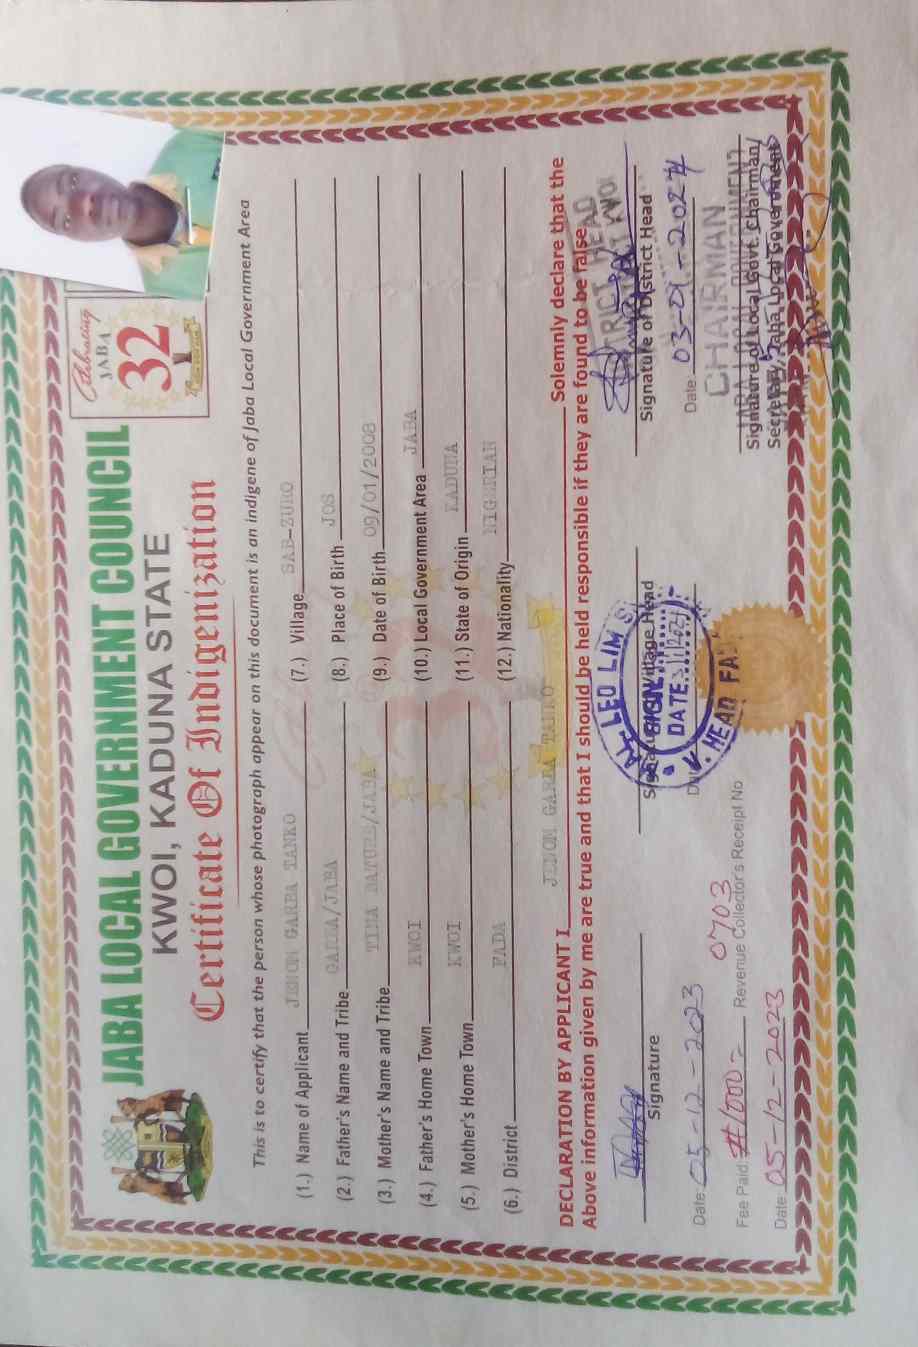 JABA LOCAL GOVERNMENT COUNCIL
KWOI, KADUNA STATE
Certificate Of Indigenization
Celebrating
JABA
32
This is to certify that the person whose photograph appear on this document is an indigene of Jaba Local Government Area
(1.) Name of Applicant GARBA TANKO
(2.) Father's Name and Tribe GARBA/JABA
(3.) Mother's Name and Tribe TINA BATURE/JABA
(4.) Father's Home Town KWOI
(5.) Mother's Home Town KWOI
(6.) District FADA
(7.) Village SAB-ZURO
(8.) Place of Birth JOS
(9.) Date of Birth 09/01/2008
(10.) Local Government Area JABA
(11.) State of Origin KADUNA
(12.) Nationality NIGERIAN
DECLARATION BY APPLICANT I GARBA TANKO Solemnly declare that the
Above information given by me are true and that I should be held responsible if they are found to be false.
Signature
Date: 05-12-2023
Fee Paid: #1000= Revenue Collector's Receipt No 0703
Date: 05-12-2023
Village Head
LEO LIM
SIGN
DATE
V. HEAD
DISTRICT HEAD
KWOI
Signature of District Head
Date: 03-01-2024
CHAIRMAN
JABA LOCAL GOVERNMENT
Signature of Local Govt. Chairman/
Secretary, Jaba Local Government